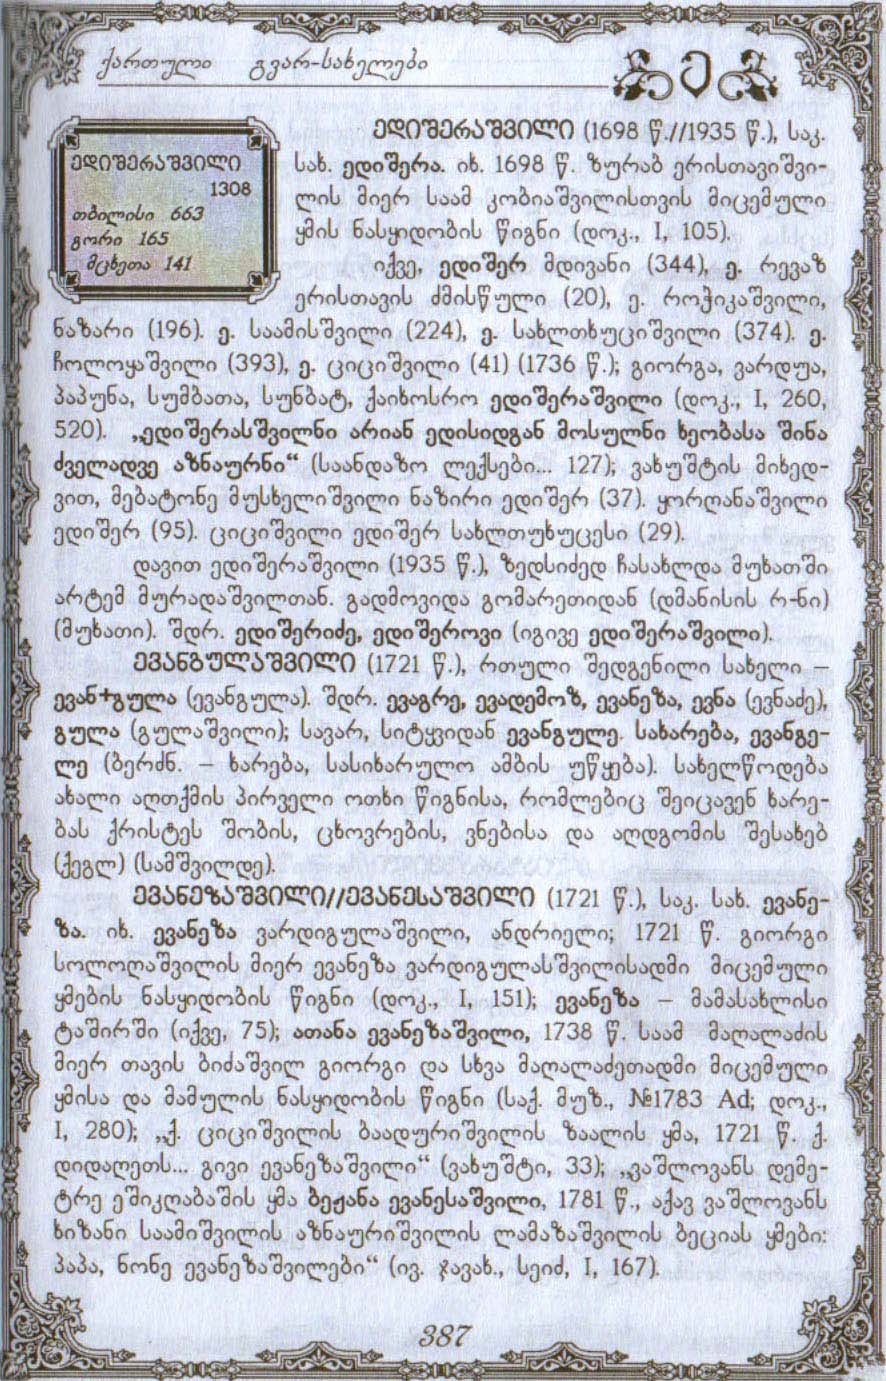 ქართული გვარ-სახელები
ე
ედიშერაშვილი
1308
თბილისი 663
გორი 165
მცხეთა 141
ედიშერაშვილი (1698 წ.//1935 წ.), საკ.
სახ. ედიშერა. იხ. 1698 წ. ზურაბ ერისთავიშვი-
ლის მიერ საამ კობიაშვილისთვის მიცემული
ყმის ნასყიდობის წიგნი (დოკ., I, 105).
იქვე, ედიშერ მდივანი (344), ე. რევაზ
ერისთავის ძმისწული (20), ე. როჭიკაშვილი,
ნაზარი (196). ე. საამისშვილი (224), ე. სახლთხუციშვილი (374). ე.
ჩოლოყაშვილი (393), ე. ციციშვილი (41) (1736 წ.); გიორგა, ვარდუა,
პაპუნა, სუმბათა, სუნბატ, ქაიხოსრო ედიშერაშვილი (დოკ., I, 260,
520). „ედიშერასშვილნი არიან ედისიდგან მოსულნი ხეობასა შინა
ძველადვე აზნაურნი“ (საანდაზო ლექსები... 127); ვახუშტის მიხედ-
ვით, მებატონე მუსხელიშვილი ნაზირი ედიშერ (37). ყორღანაშვილი
ედიშერ (95). ციციშვილი ედიშერ სახლთუხუცესი (29).
დავით ედიშერაშვილი (1935 წ.), ზედსიძედ ჩასახლდა მუხათში
არტემ მურადაშვილთან. გადმოვიდა გომარეთიდან (დმანისის რ-ნი)
(მუხათი). შდრ. ედიშერიძე, ედიშეროვი (იგივე ედიშერაშვილი).
ევანგულაშვილი (1721 წ.), რთული შედგენილი სახელი –
ევან+გულა (ევანგულა). შდრ. ევაგრე, ევადემოზ, ევანეზა, ევნა (ევნაძე),
გულა (გულაშვილი); სავარ, სიტყვიდან ევანგულე. სახარება, ევანგე-
ლე (ბერძნ. – ხარება, სასიხარულო ამბის უწყება). სახელწოდება
ახალი აღთქმის პირველი ოთხი წიგნისა, რომლებიც შეიცავენ ხარე-
ბას ქრისტეს შობის, ცხოვრების, ვნებისა და აღდგომის შესახებ
(ქეგლ) (სამშვილდე).
ევანეზაშვილი//ევანესაშვილი (1721 წ.), საკ. სახ. ევანე-
ზა. იხ. ევანეზა ვარდიგულაშვილი, ანდრიელი; 1721 წ. გიორგი
სოლოღაშვილის მიერ ევანეზა ვარდიგულასშვილისადმი მიცემული
ყმების ნასყიდობის წიგნი (დოკ., I, 151); ევანეზა – მამასახლისი
ტაშირში (იქვე, 75); ათანა ევანეზაშვილი, 1738 წ. საამ მაღალაძის
მიერ თავის ბიძაშვილ გიორგი და სხვა მაღალაძეთადმი მიცემული
ყმისა და მამულის ნასყიდობის წიგნი (საქ. მუზ., №1783 Ad; დოკ.,
I, 280); „ქ. ციციშვილის ბაადურიშვილის ზაალის ყმა, 1721 წ. ქ.
დიდაღეთს... გივი ევანეზაშვილი“ (ვახუშტი, 33); „ვაშლოვანს დემე-
ტრე ეშიკღაბაშის ყმა ბეჟანა ევანესაშვილი, 1781 წ., აქავ ვაშლოვანს
ხიზანი საამიშვილის აზნაურიშვილის ლამაზაშვილის ბეციას ყმები:
პაპა, ნონე ევანეზაშვილები“ (ივ. ჯავახ., სეიძ, I, 167).
387